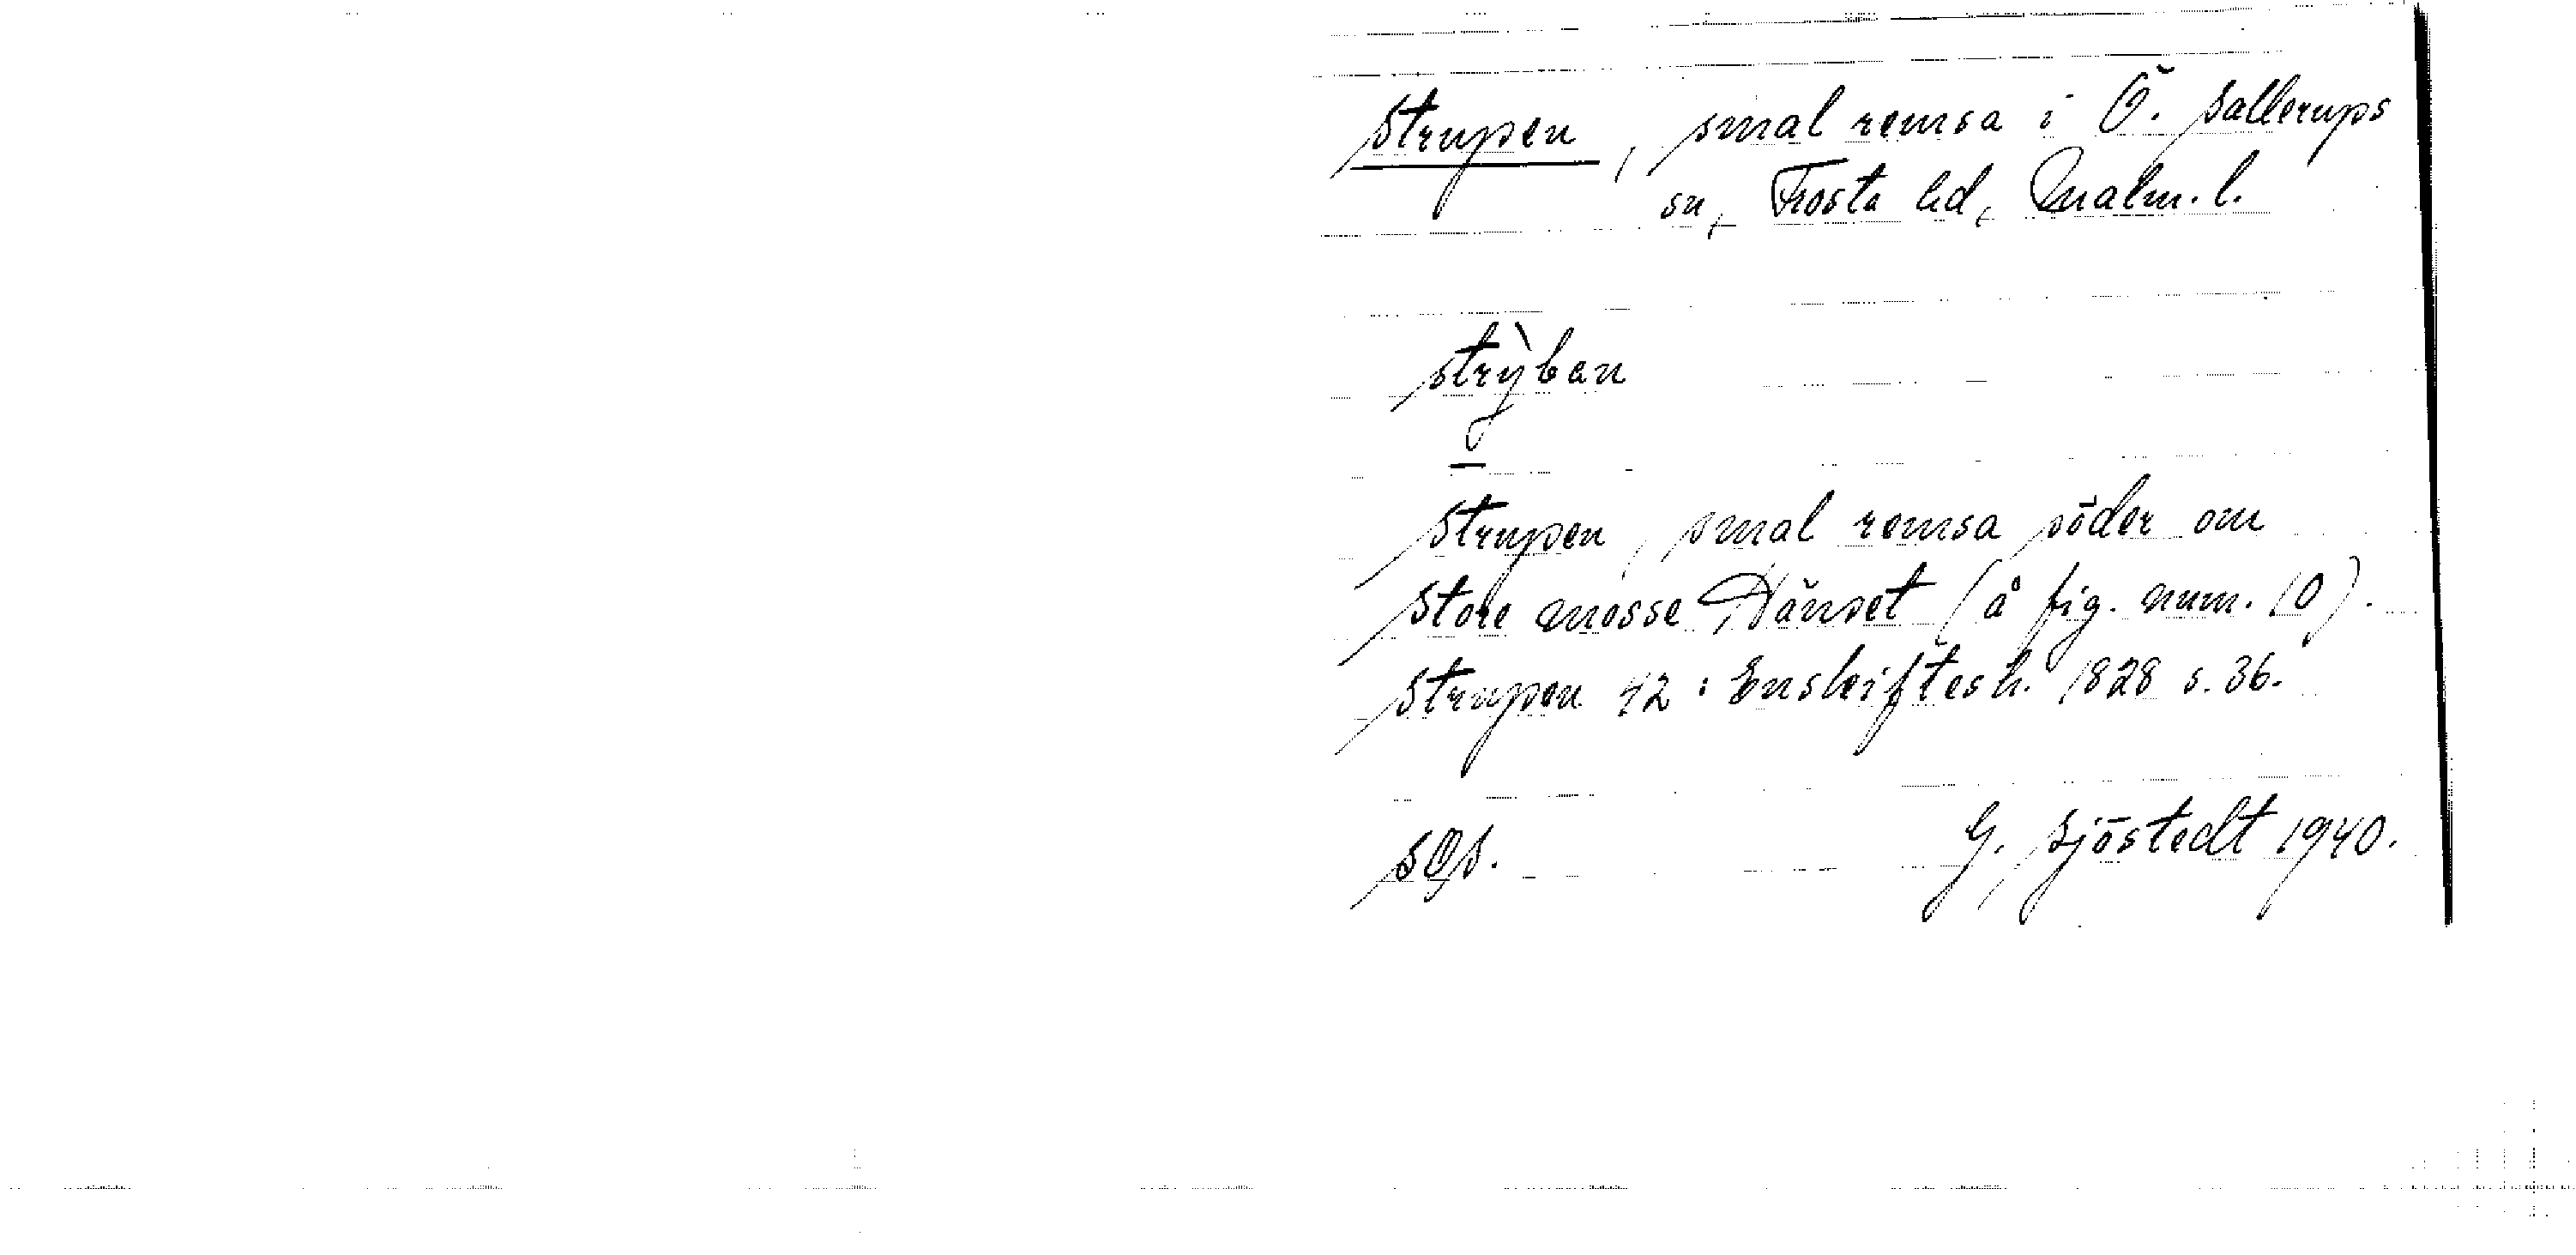 Strupen, smal remsa i Ö. Sallerups
sn, Frosta hd, Malm. l.
strỳban
Strupen, smal remsa söder om
Store mosse Hänset (å fig. num. 10).
Strupen 42: Enskiftesh. 1828 s. 36.
SOS. G. Sjöstedt 1940.